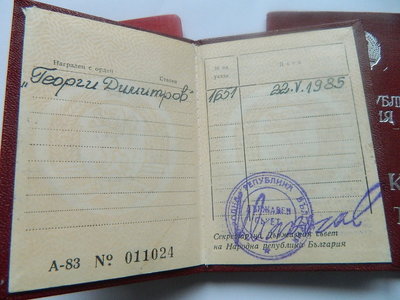 Награден с орден
Степен
„Георги Димитров“
А-83 № 011024
№ на
указа
Дата
1651
22.V.1985
НАРОДНА РЕПУБЛИКА БЪЛГАРИЯ
ДЪРЖАВЕН
СЪВЕТ
Секретар на Държавния съвет
на Народна република България